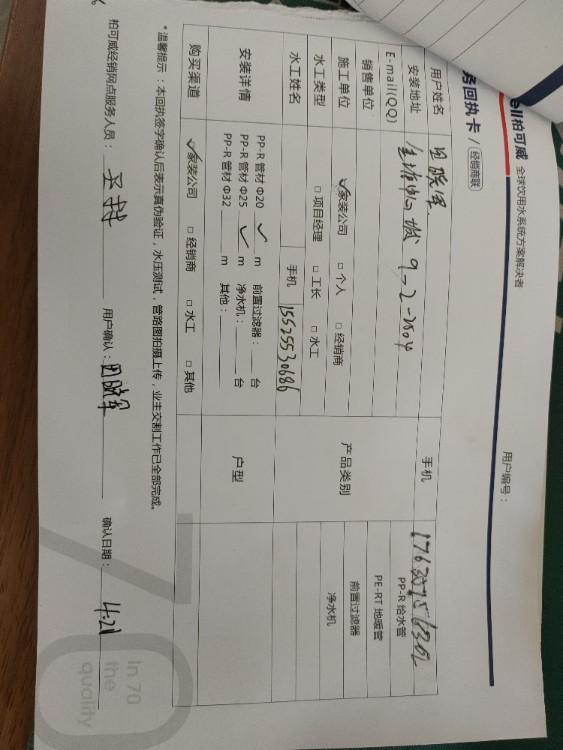 ell柏可威 全球饮用水系统方案解决者
务回执卡 / 经销商联
用户编号：
用户姓名 田晓军 手机
安装地址 9-2-2504
E-mail(QQ)
销售单位
施工单位 ✓家装公司 □ 个人 □ 经销商
水工类型 □ 项目经理 □ 工长 □ 水工
水工姓名 手机 15525530686
产品类别
PP-R 给水管
PE-RT 地暖管
前置过滤器
净水机
安装详情
PP-R 管材 Φ20 ✓ m 前置过滤器： 台
PP-R 管材 Φ25 ✓ m 净水机： 台
PP-R 管材 Φ32 m 其他：
户型
购买渠道 ✓家装公司 □ 经销商 □ 水工 □ 其他
*温馨提示：本回执签字确认后表示真伪验证，水压测试，管路图拍摄上传，业主交割工作已全部完成。
柏可威经销网点服务人员： 用户确认：田晓军 确认日期： 4.21
In 70
the
quality